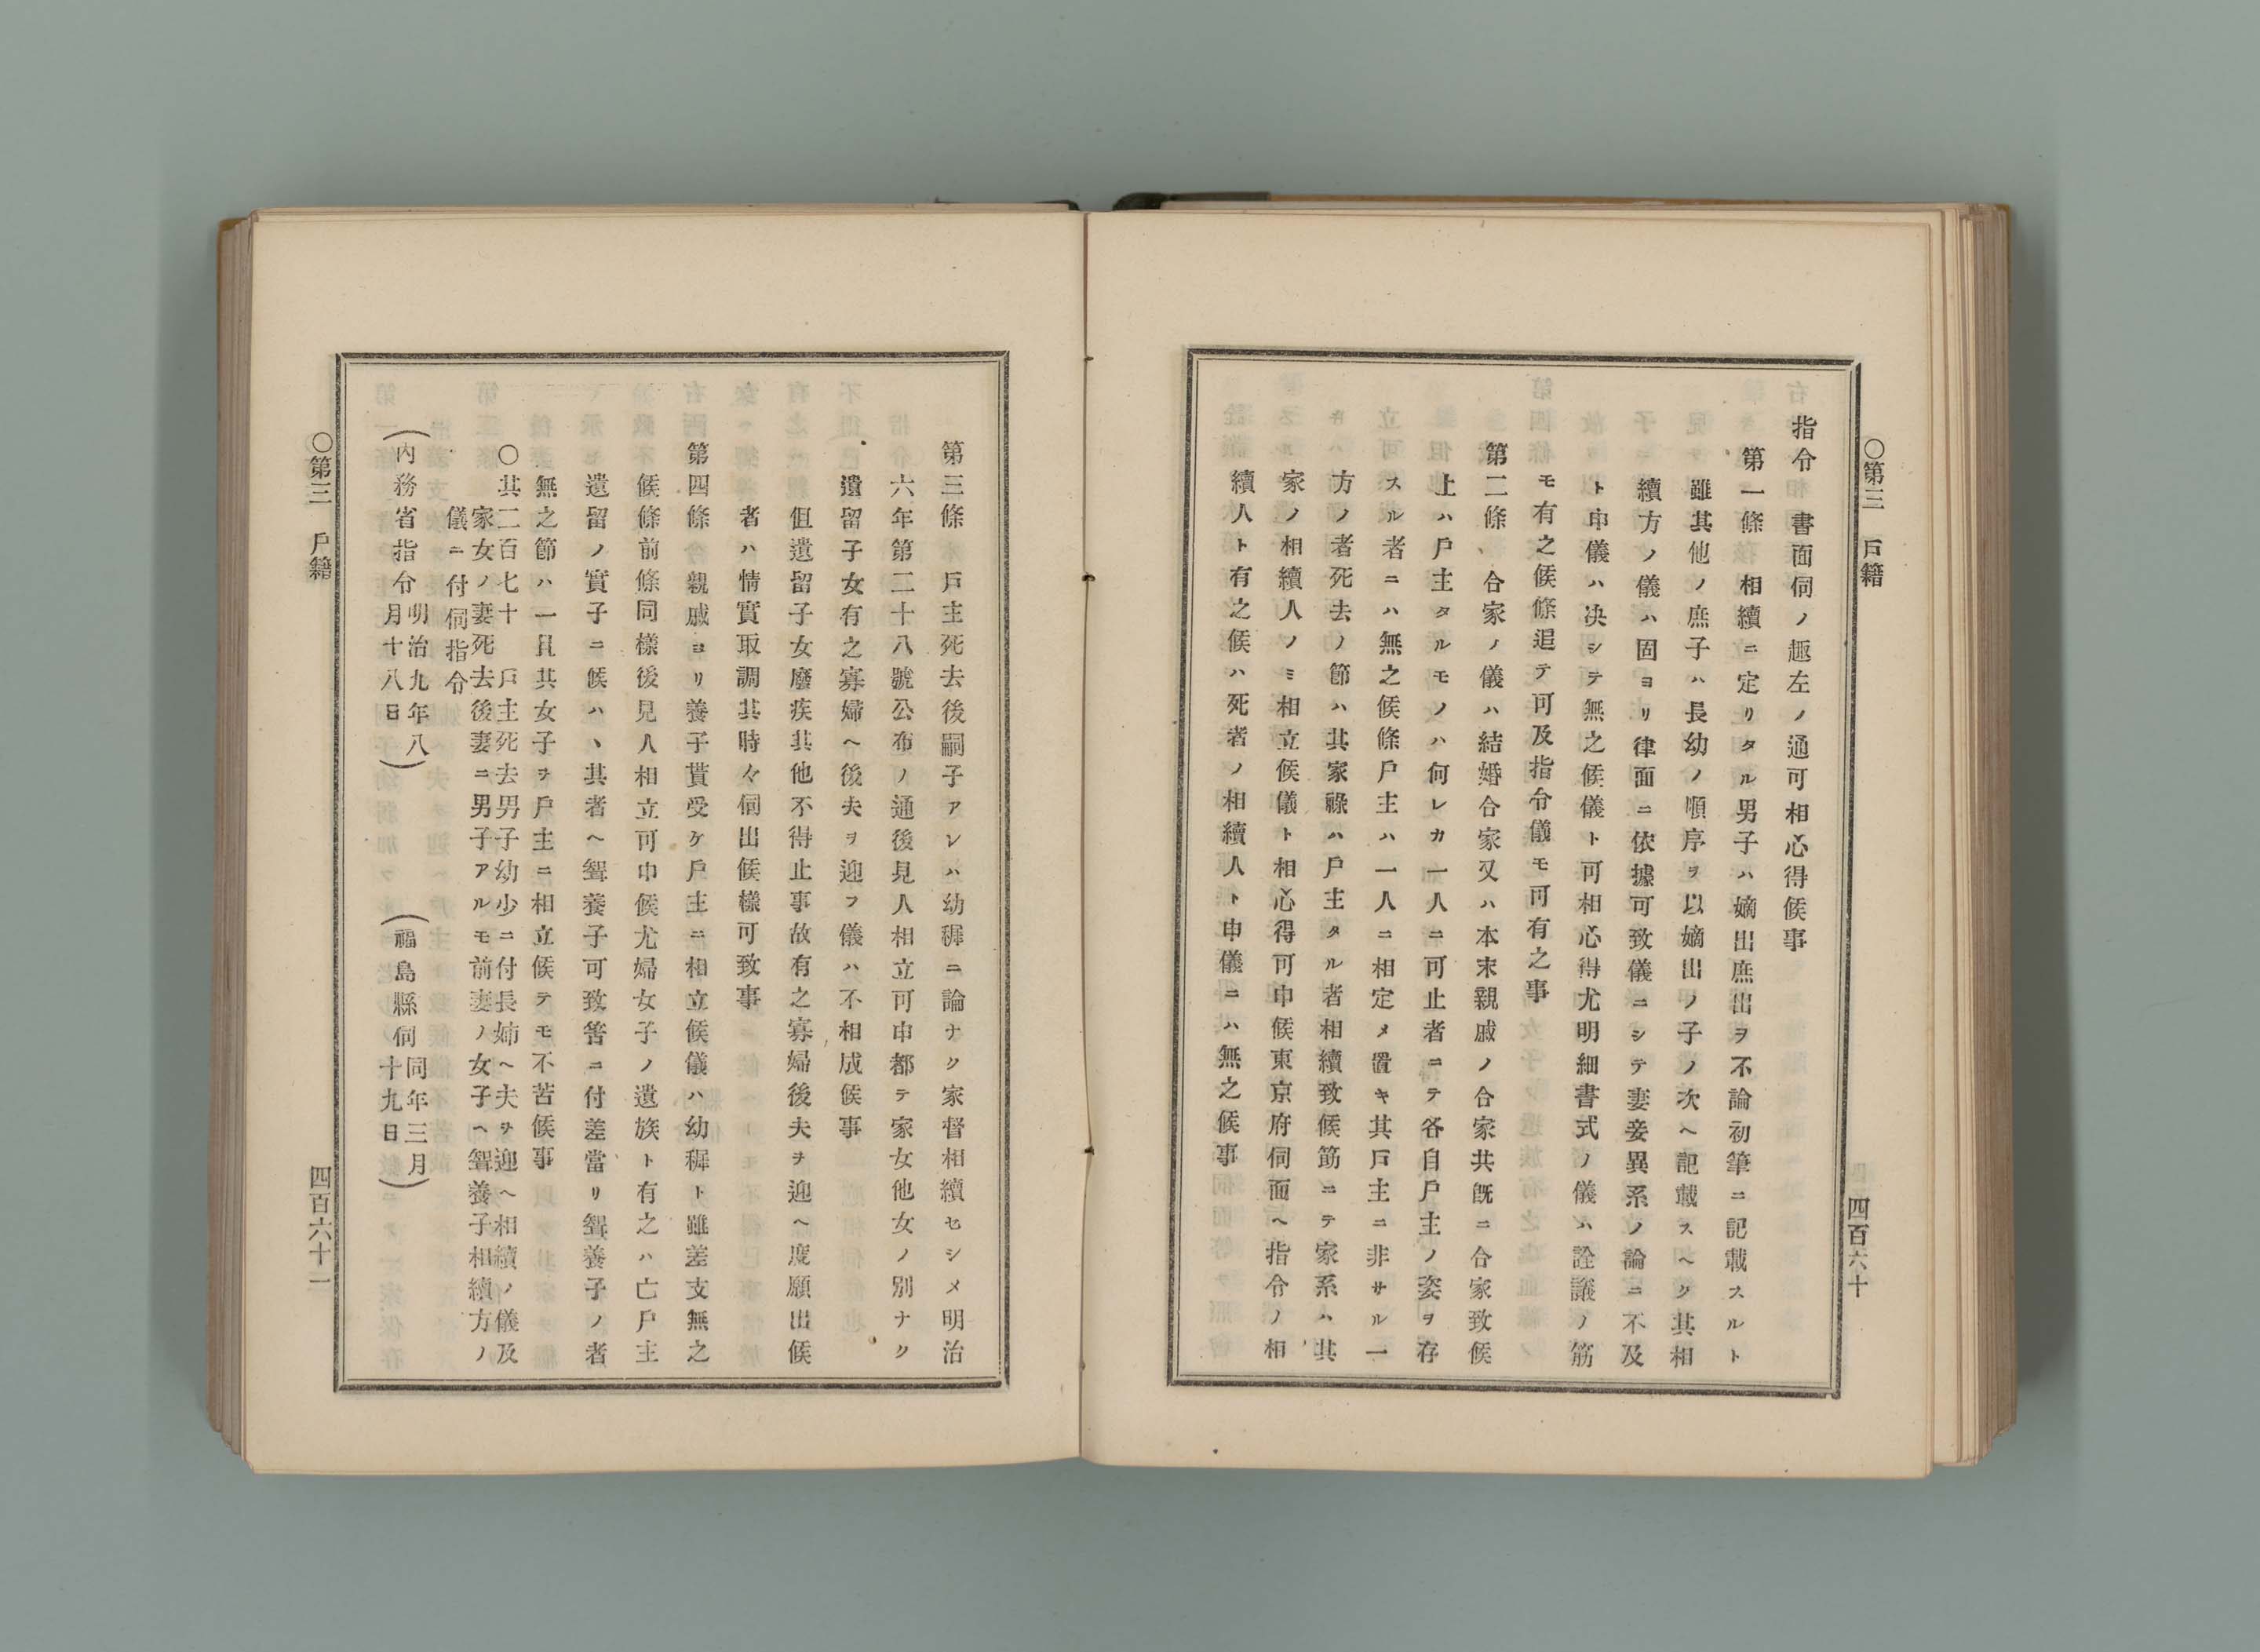 ○第三　戶籍
四百六十
指令　書面伺ノ趣左ノ通可相心得候事
第一條　相續ニ定リタル男子ハ嫡出庶出ヲ不論初筆ニ記載スルト
雖其他ノ庶子ハ長幼ノ順序ヲ以嫡出ノ子ノ次ヘ記載スヘク其相
續方ノ儀ハ固ヨリ律面ニ依據可致儀ニシテ妻妾異系ノ論ニ不及
ト申儀ハ决シテ無之候儀ト可相心得尤明細書式ノ儀ハ詮議ノ筋
モ有之候條追テ可及指令儀モ可有之事
第二條　合家ノ儀ハ結婚合家又ハ本末親戚ノ合家共既ニ合家致候
上ハ戶主タルモノハ何レカ一人ニ可止者ニテ各自戶主ノ姿ヲ存
スル者ニハ無之候條戶主ハ一人ニ相定メ置キ其戶主ニ非サル一
方ノ者死去ノ節ハ其家祿ハ戶主タル者相續致候筋ニテ家系ハ其
家ノ相續人ノミ相立候儀ト相心得可申候東京府伺面ヘ指令ノ相
續人ト有之候ハ死者ノ相續人ト申儀ニハ無之候事
第三條　戶主死去後嗣子アレハ幼穉ニ論ナク家督相續セシメ明治
六年第二十八號公布ノ通後見人相立可申都テ家女他女ノ別ナク
遺留子女有之寡婦ヘ後夫ヲ迎フ儀ハ不相成候事
但遺留子女廢疾其他不得止事故有之寡婦後夫ヲ迎ヘ度願出候
者ハ情實取調其時々伺出候樣可致事
第四條　親戚ヨリ養子貰受ケ戶主ニ相立候儀ハ幼穉ト雖差支無之
候條前條同樣後見人相立可申候尤婦女子ノ遺族ト有之ハ亡戶主
遺留ノ實子ニ候ハヽ其者ヘ聟養子可致筈ニ付差當リ聟養子ノ者
無之節ハ一旦其女子ヲ戶主ニ相立候テモ不苦候事
○其二百七十　戶主死去男子幼少ニ付長姉ヘ夫ヲ迎ヘ相續ノ儀及
家女ノ妻死去後妻ニ男子アルモ前妻ノ女子ヘ聟養子相續方ノ
儀ニ付伺指令
（內務省指令明治九年八月十八日）　（福島縣伺同年三月十九日）
○第三　戶籍
四百六十一